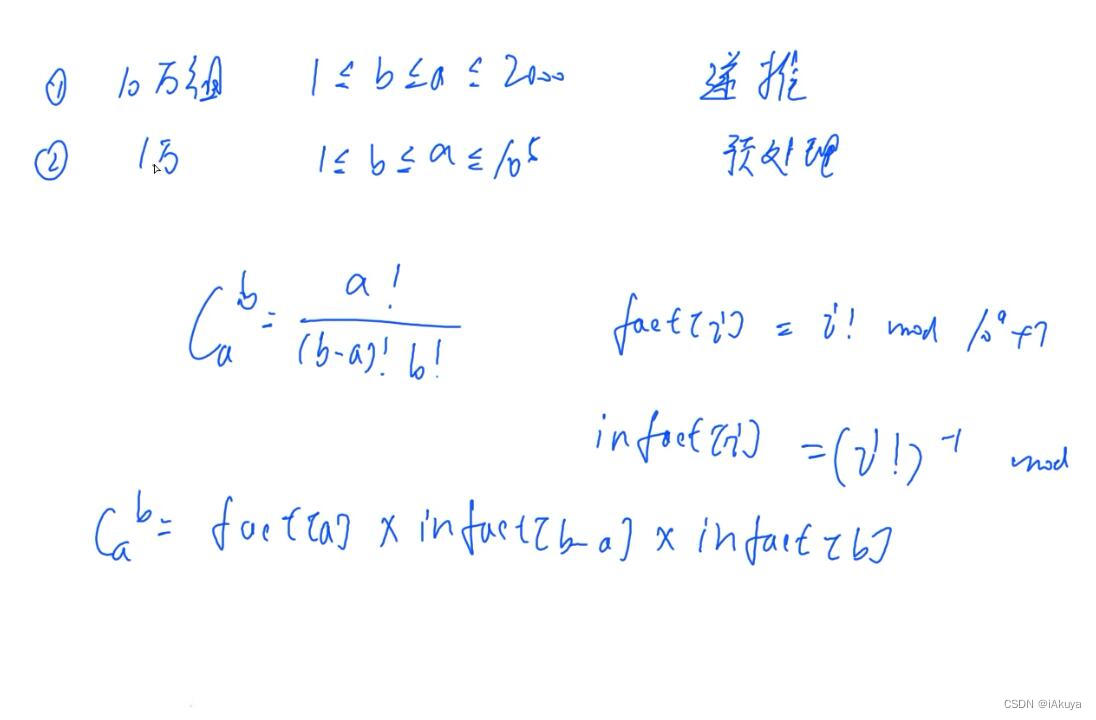 ① 10万组 1 ≤ b ≤ a ≤ 2000 递推
② 1万 1 ≤ b ≤ a ≤ 10^5 预处理
C_a^b = a! / (b-a)! b! fact[i] = i! mod 10^9+7
infact[i] = (i!)^-1 mod
C_a^b = fact[a] × infact[b-a] × infact[b]
CSDN @iAkuya